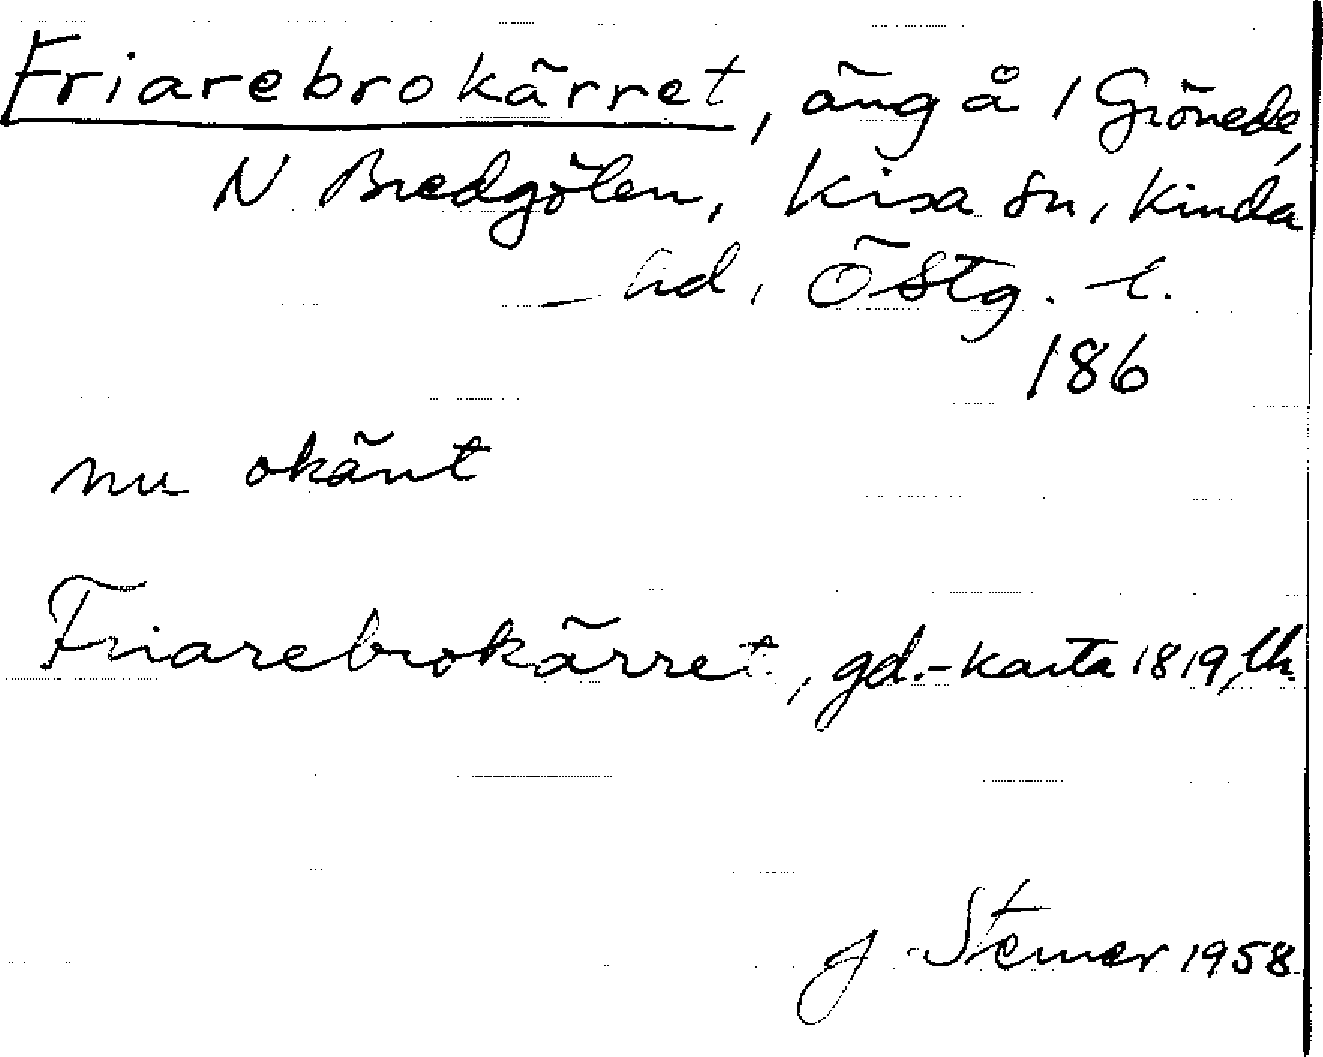 Friarebrokärret, äng å 1 Grönede,
N Bredgölen, Kisa sn, Kinda
hd, Östg. l.
186
nu okänt
Friarebrokärret, gd.-karta 1819, lh.
J Sterner 1958